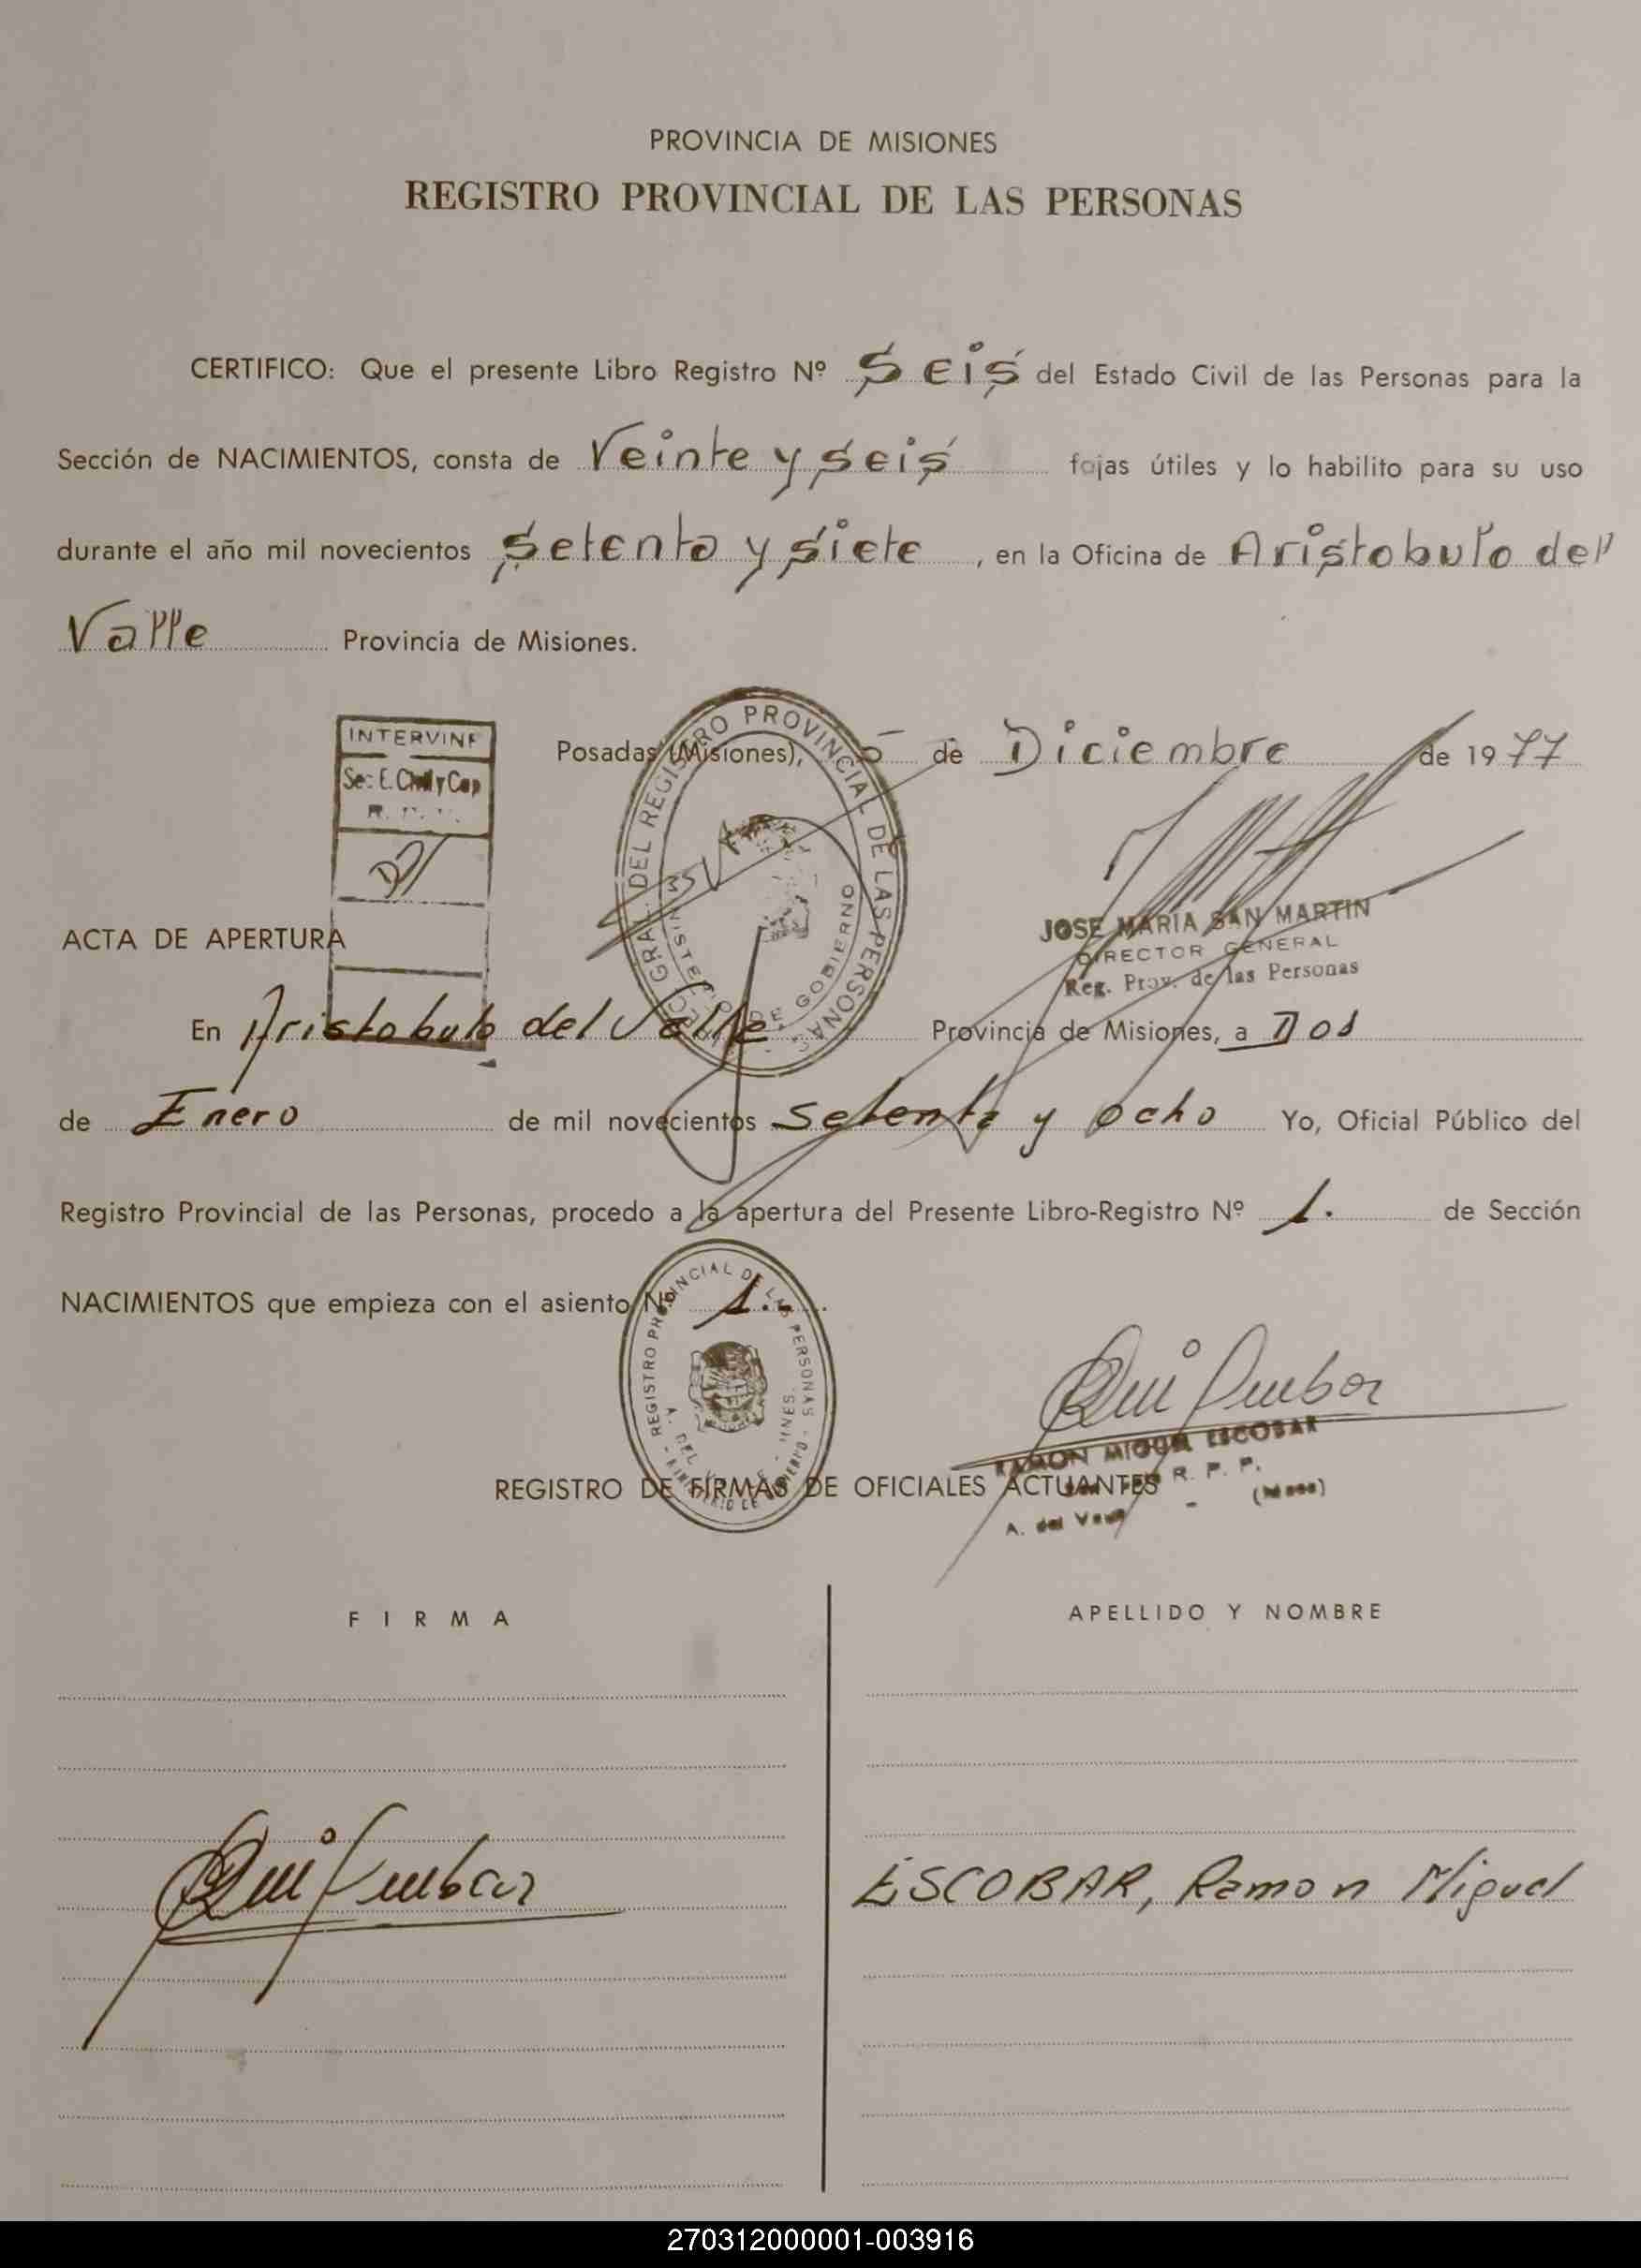 PROVINCIA DE MISIONES
REGISTRO PROVINCIAL DE LAS PERSONAS
CERTIFICO: Que el presente Libro Registro Nº Seis del Estado Civil de las Personas para la
Sección de NACIMIENTOS, consta de Veinte y seis fojas útiles y lo habilito para su uso
durante el año mil novecientos Setenta y siete, en la Oficina de Aristobulo del
Valle Provincia de Misiones.
Posadas (Misiones), 5 de Diciembre de 1977
INTERVINE
Sec. E. Civil y Cap
DEL REGISTRO PROVINCIAL DE LAS PERSONAS
DE GOBIERNO
JOSE MARIA SAN MARTIN
DIRECTOR GENERAL
Reg. Prov. de las Personas
ACTA DE APERTURA
En Aristobulo del Valle Provincia de Misiones, a Dos
de Enero de mil novecientos setenta y ocho Yo, Oficial Público del
Registro Provincial de las Personas, procedo a la apertura del Presente Libro-Registro Nº 1. de Sección
NACIMIENTOS que empieza con el asiento Nº 1.-
REGISTRO PROVINCIAL DE LAS PERSONAS
RAMON MIGUEL ESCOBAR
R. P. P.
A. del Valle - (Mnes)
REGISTRO DE FIRMAS DE OFICIALES ACTUANTES
FIRMA
APELLIDO Y NOMBRE
ESCOBAR, Ramon Miguel
270312000001-003916